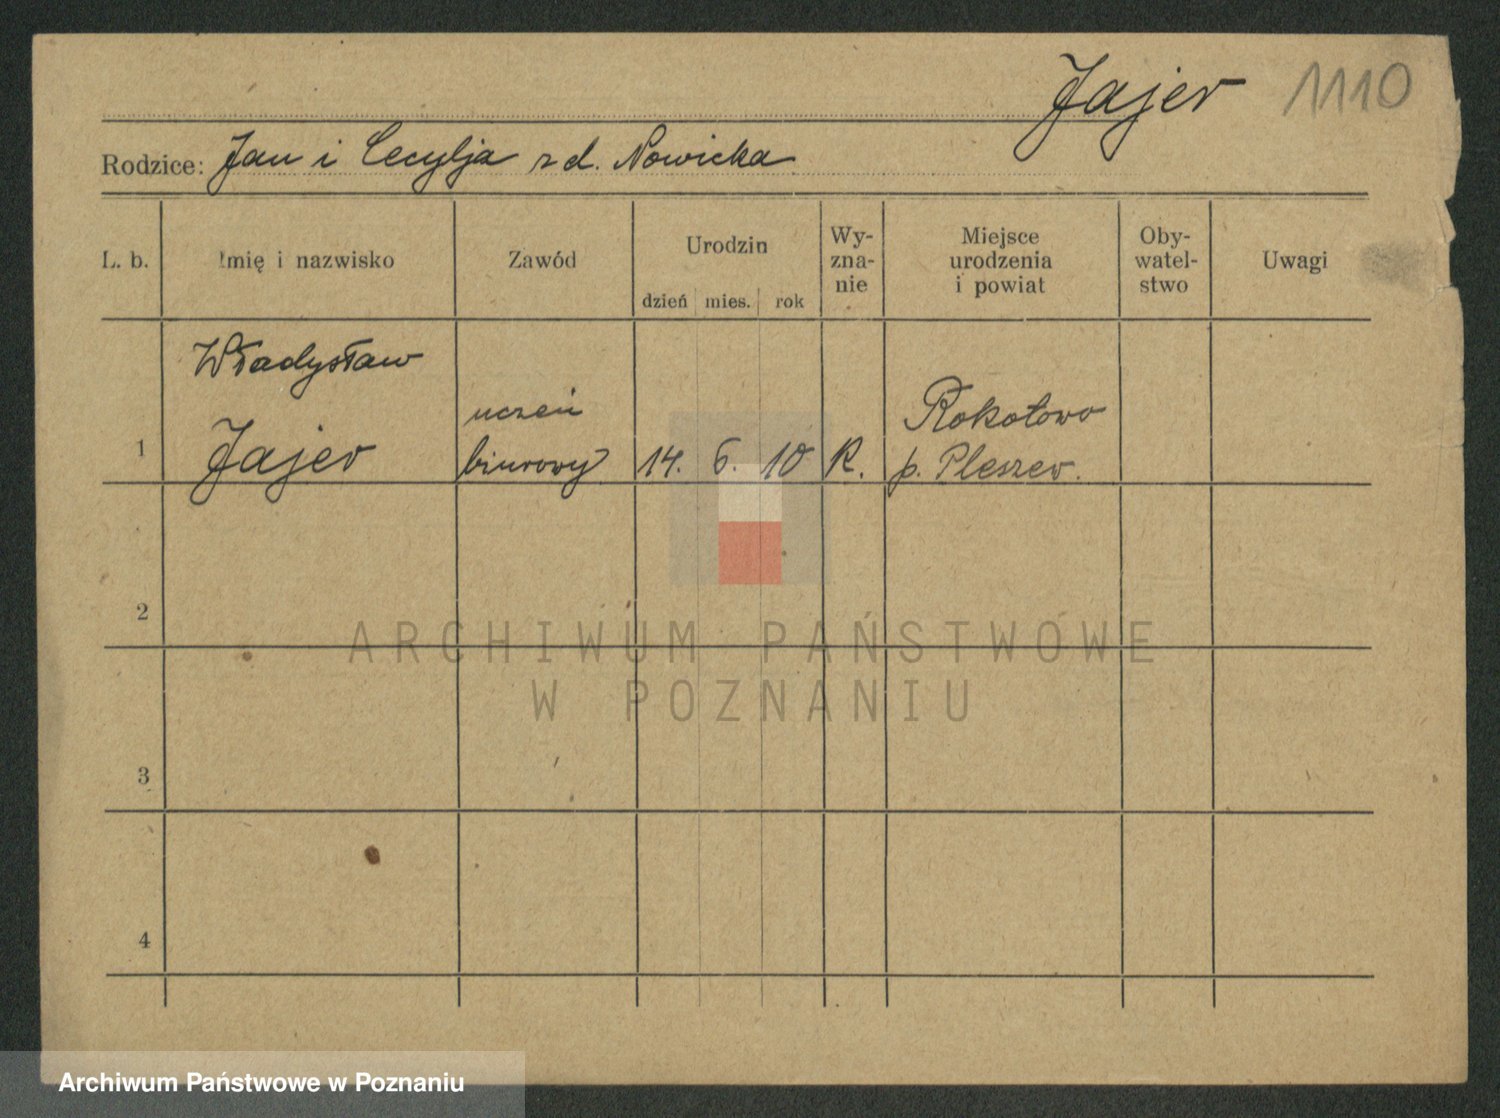 Jajer 1110
Rodzice: Jan i Cecylja z d. Nowicka
L. b. Imię i nazwisko Zawód Urodzin dzień mies. rok Wy-zna-nie Miejsce urodzenia i powiat Oby-watel-stwo Uwagi
Władysław
uczeń Rokotowo
1 Jajer biurowy 14. 6. 10 R. p. Pleszew.
2
ARCHIWUM PAŃSTWOWE
W POZNANIU
3
4
Archiwum Państwowe w Poznaniu